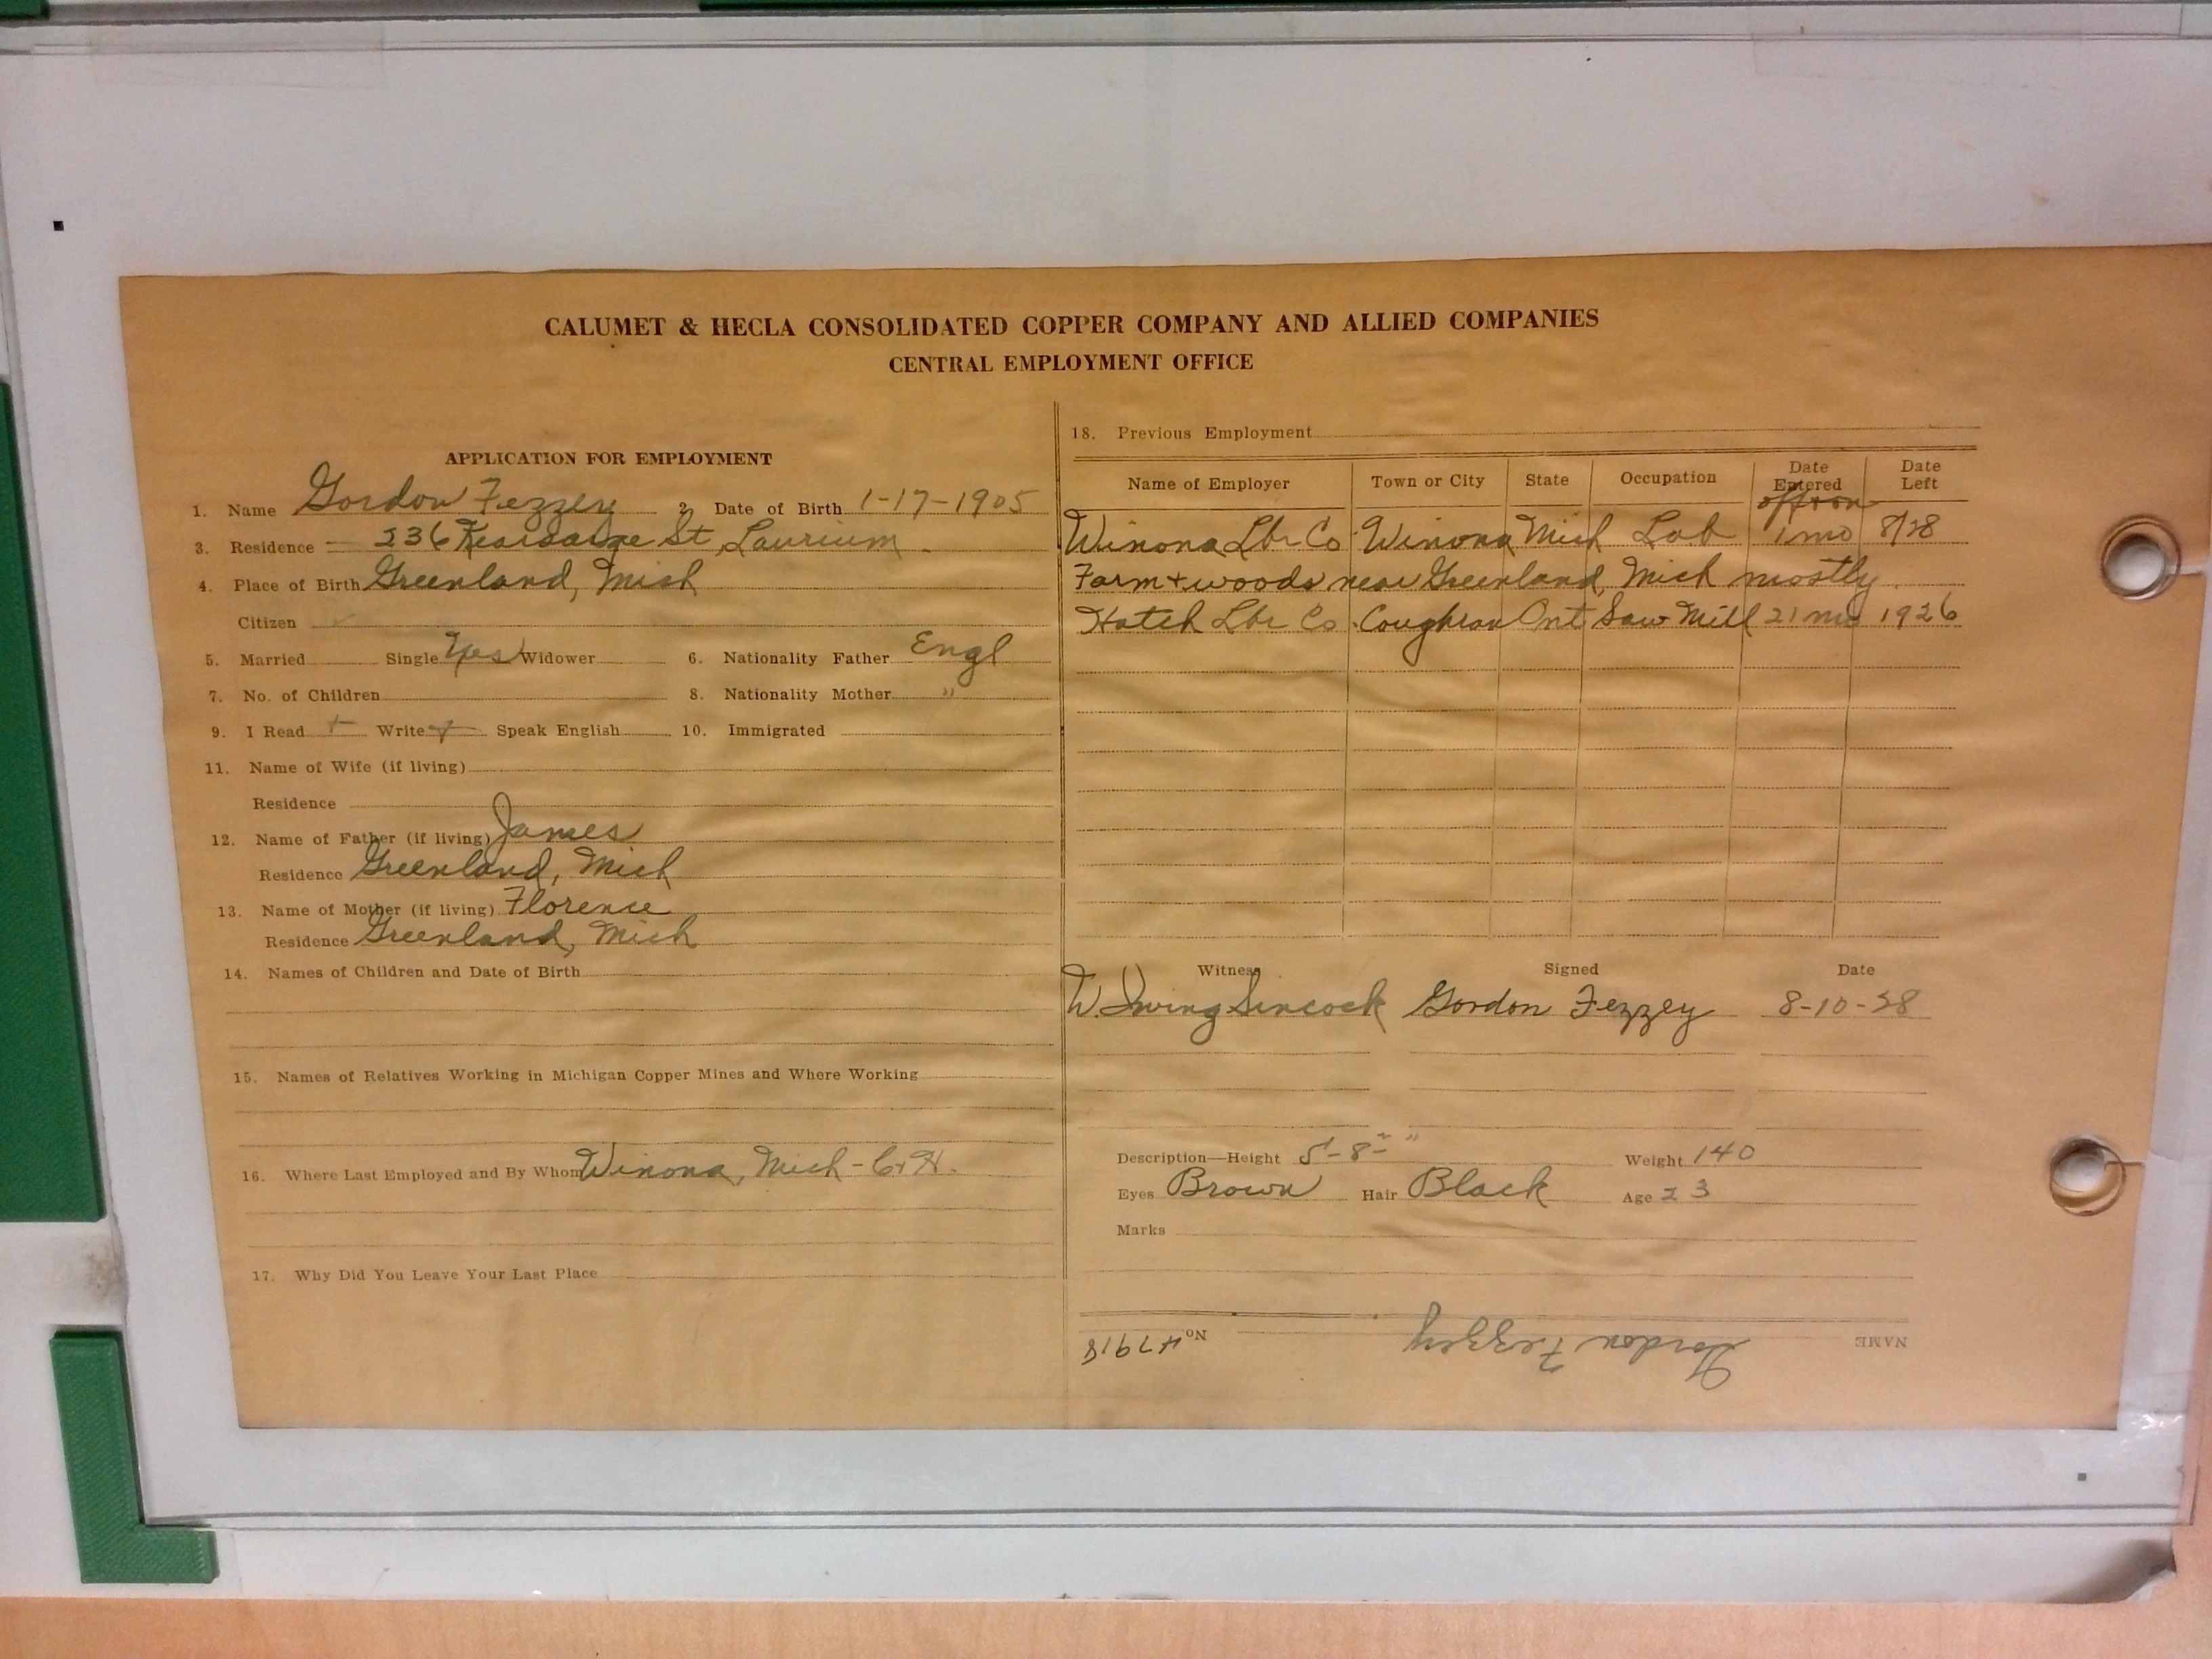 CALUMET & HECLA CONSOLIDATED COPPER COMPANY AND ALLIED COMPANIES
CENTRAL EMPLOYMENT OFFICE
APPLICATION FOR EMPLOYMENT
1. Name Gordon Fezzey 2. Date of Birth 1-17-1905
3. Residence - 236 Kearsarge St, Laurium.
4. Place of Birth Greenland, Mich
Citizen ✓
5. Married Single Yes Widower 6. Nationality Father Engl
7. No. of Children 8. Nationality Mother "
9. I Read + Write + Speak English 10. Immigrated
11. Name of Wife (if living)
Residence
12. Name of Father (if living) James
Residence Greenland, Mich
13. Name of Mother (if living) Florence
Residence Greenland, Mich
14. Names of Children and Date of Birth
15. Names of Relatives Working in Michigan Copper Mines and Where Working
16. Where Last Employed and By Whom Winona, Mich - C+H.
17. Why Did You Leave Your Last Place
18. Previous Employment
Name of Employer Town or City State Occupation Date Entered Date Left
off+on
Winona Lbr Co Winona Mich Lab 1 mo 8/28
Farm + woods near Greenland, Mich mostly
Hatch Lbr Co. Ont Saw Mill 21 mo 1926
Witness Signed Date
W. Irving Sincock Gordon Fezzey 8-10-28
Description—Height 5'-8" Weight 140
Eyes Brown Hair Black Age 23
Marks
NAME Gordon Fezzey No. H7918